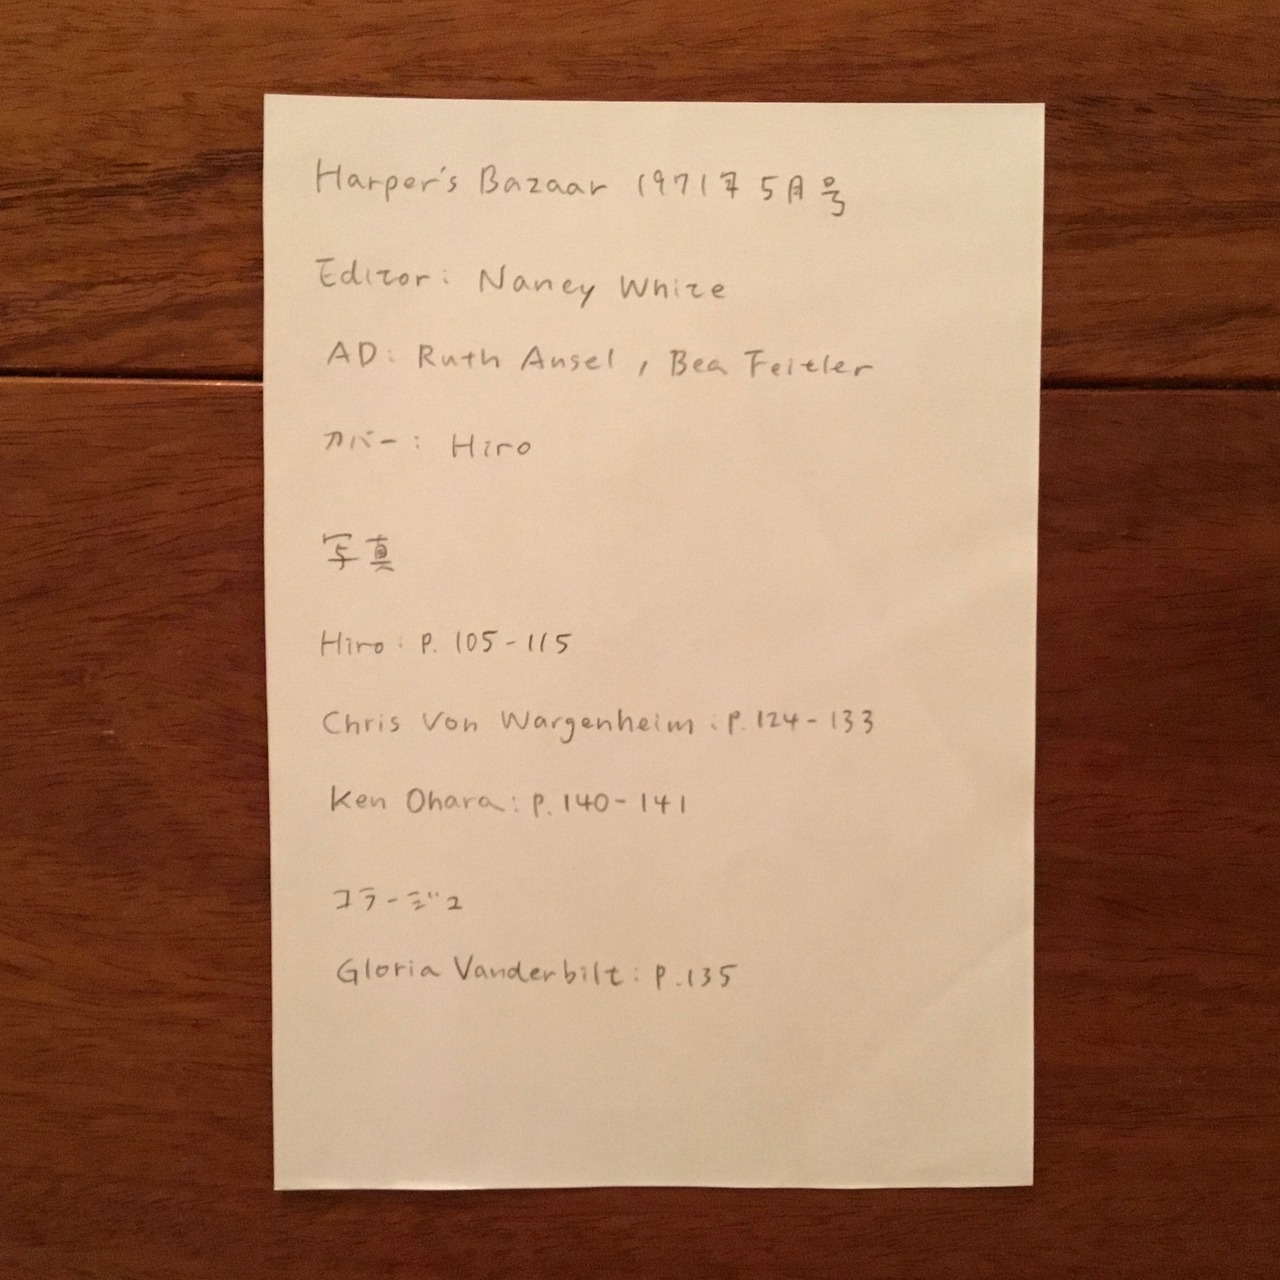 Harper's Bazaar 1971年 5月号
Editor: Nancy White
AD: Ruth Ansel , Bea Feitler
カバー: Hiro
写真
Hiro: P. 105-115
Chris Von Wargenheim: P. 124-133
Ken Ohara: P. 140-141
コラージュ
Gloria Vanderbilt: P.135